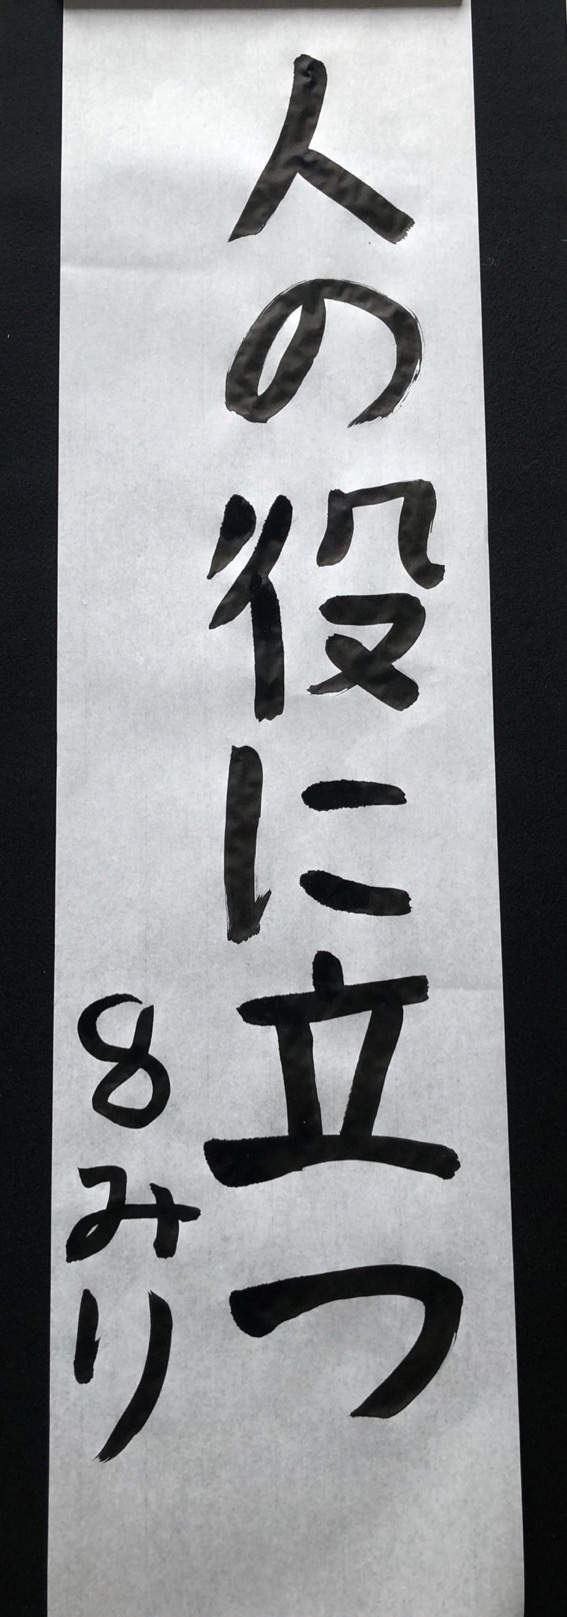 人の役に立つ
8みり